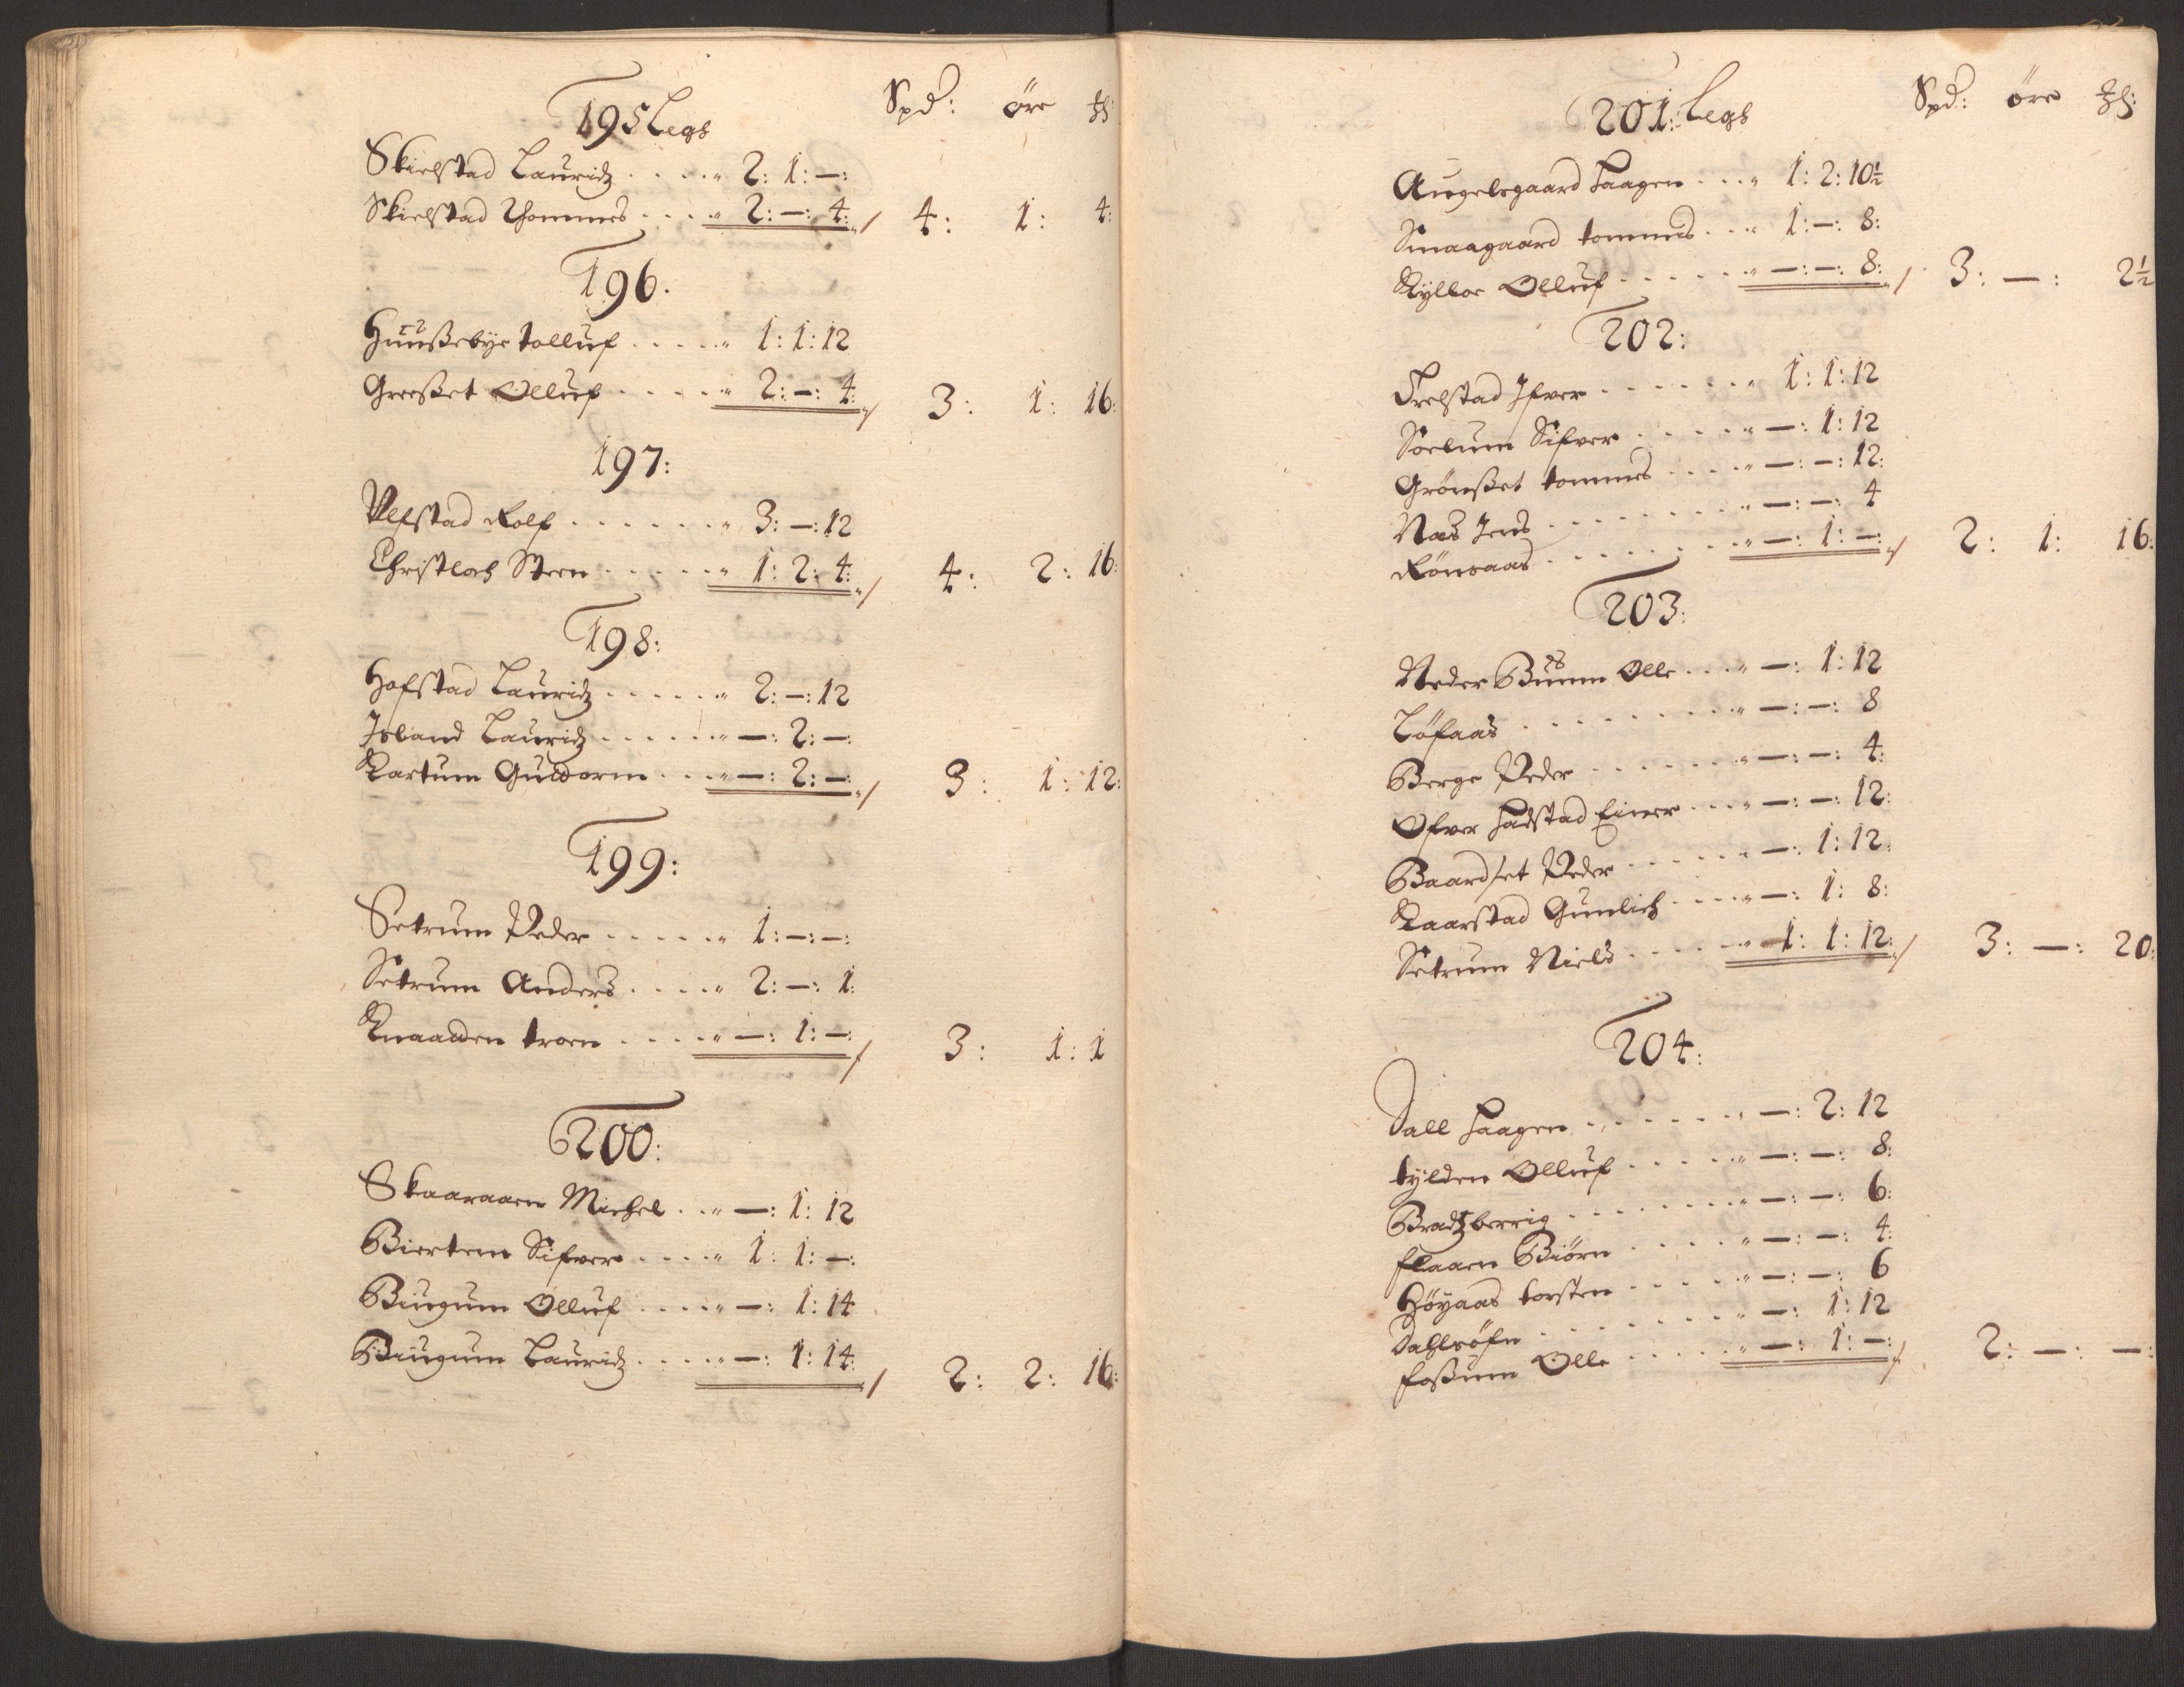 195 Legs Spd: öre ℔:
Skielstad Lauridz . . . . " 2: 1: —:
Skielstad Thommes . . . . " 2: —: 4: / 4: 1: 4:
196.
Huußebÿe tolluf . . . . . " 1: 1: 12
Greeßet Olluf . . . . . " 2: —: 4: / 3: 1: 16:
197:
Ulfstad Rolf . . . . . . " 3: —: 12
Christloch Steen . . . . . " 1: 2: 4: / 4: 2: 16:
198:
Hofstad Lauridz . . . . . " 2: —: 12
Isband Lauridz . . . . . " —: 2: —:
Kartum Guldorm . . . " —: 2: —: / 3: 1: 12:
199:
Setrum Peder . . . . . " 1: —: —:
Setrum Anders . . . . " 2: —: 1:
Knaadden troen . . . . " —: 1: —: / 3: 1: 1
200:
Skaaraaen Michel . . " —: 1: 12
Biertem Sifver . . . . " 1: 1: —:
Biugum Olluf . . . . " —: 1: 14
Biugum Lauridz . . . . " —: 1: 14: / 2: 2: 16:
201: Legs Spd: öre ℔:
Augelsgaard Haagen . . . " 1: 2: 10½
Smaagaard tommes . . " 1: —: 8:
Kÿlloe Olluf . . . . . " —: —: 8: / 3: —: 2½
202:
Trelstad Ifver . . . . . . " 1: 1: 12
Soelum Sifver . . . . . " —: 1: 12
Grönßet tommes . . . . " —: —: 12:
Nas Jens . . . . . . . . " —: —: 4
Rönaas . . . . . . . " —: 1: —: / 2: 1: 16:
203:
Neder Buum Olle . . . " —: 1: 12
Löfaas . . . . . . . . " —: —: 8
Berge Peder . . . . . . " —: —: 4:
Ofver Hadstad Einer . . . " —: —: 12:
Baardset Peder . . . . . " —: 1: 12:
Kaarstad Gunlich . . . " —: 1: 8:
Setrum Niels . . . . . " 1: 1: 12: / 3: —: 20:
204:
Dall Haagen . . . . . . " —: 2: 12
tÿlden Olluf . . . . " —: —: 8:
Bradtzberrig . . . . . . . " —: —: 6:
flaaen Biörn . . . . . " —: —: 4:
Höÿaas torsten . . . . . " —: —: 6
Dahlsöfn . . . . . . . " —: 1: 12
foßum Olle . . . . . " —: 1: —: / 2: —: —: